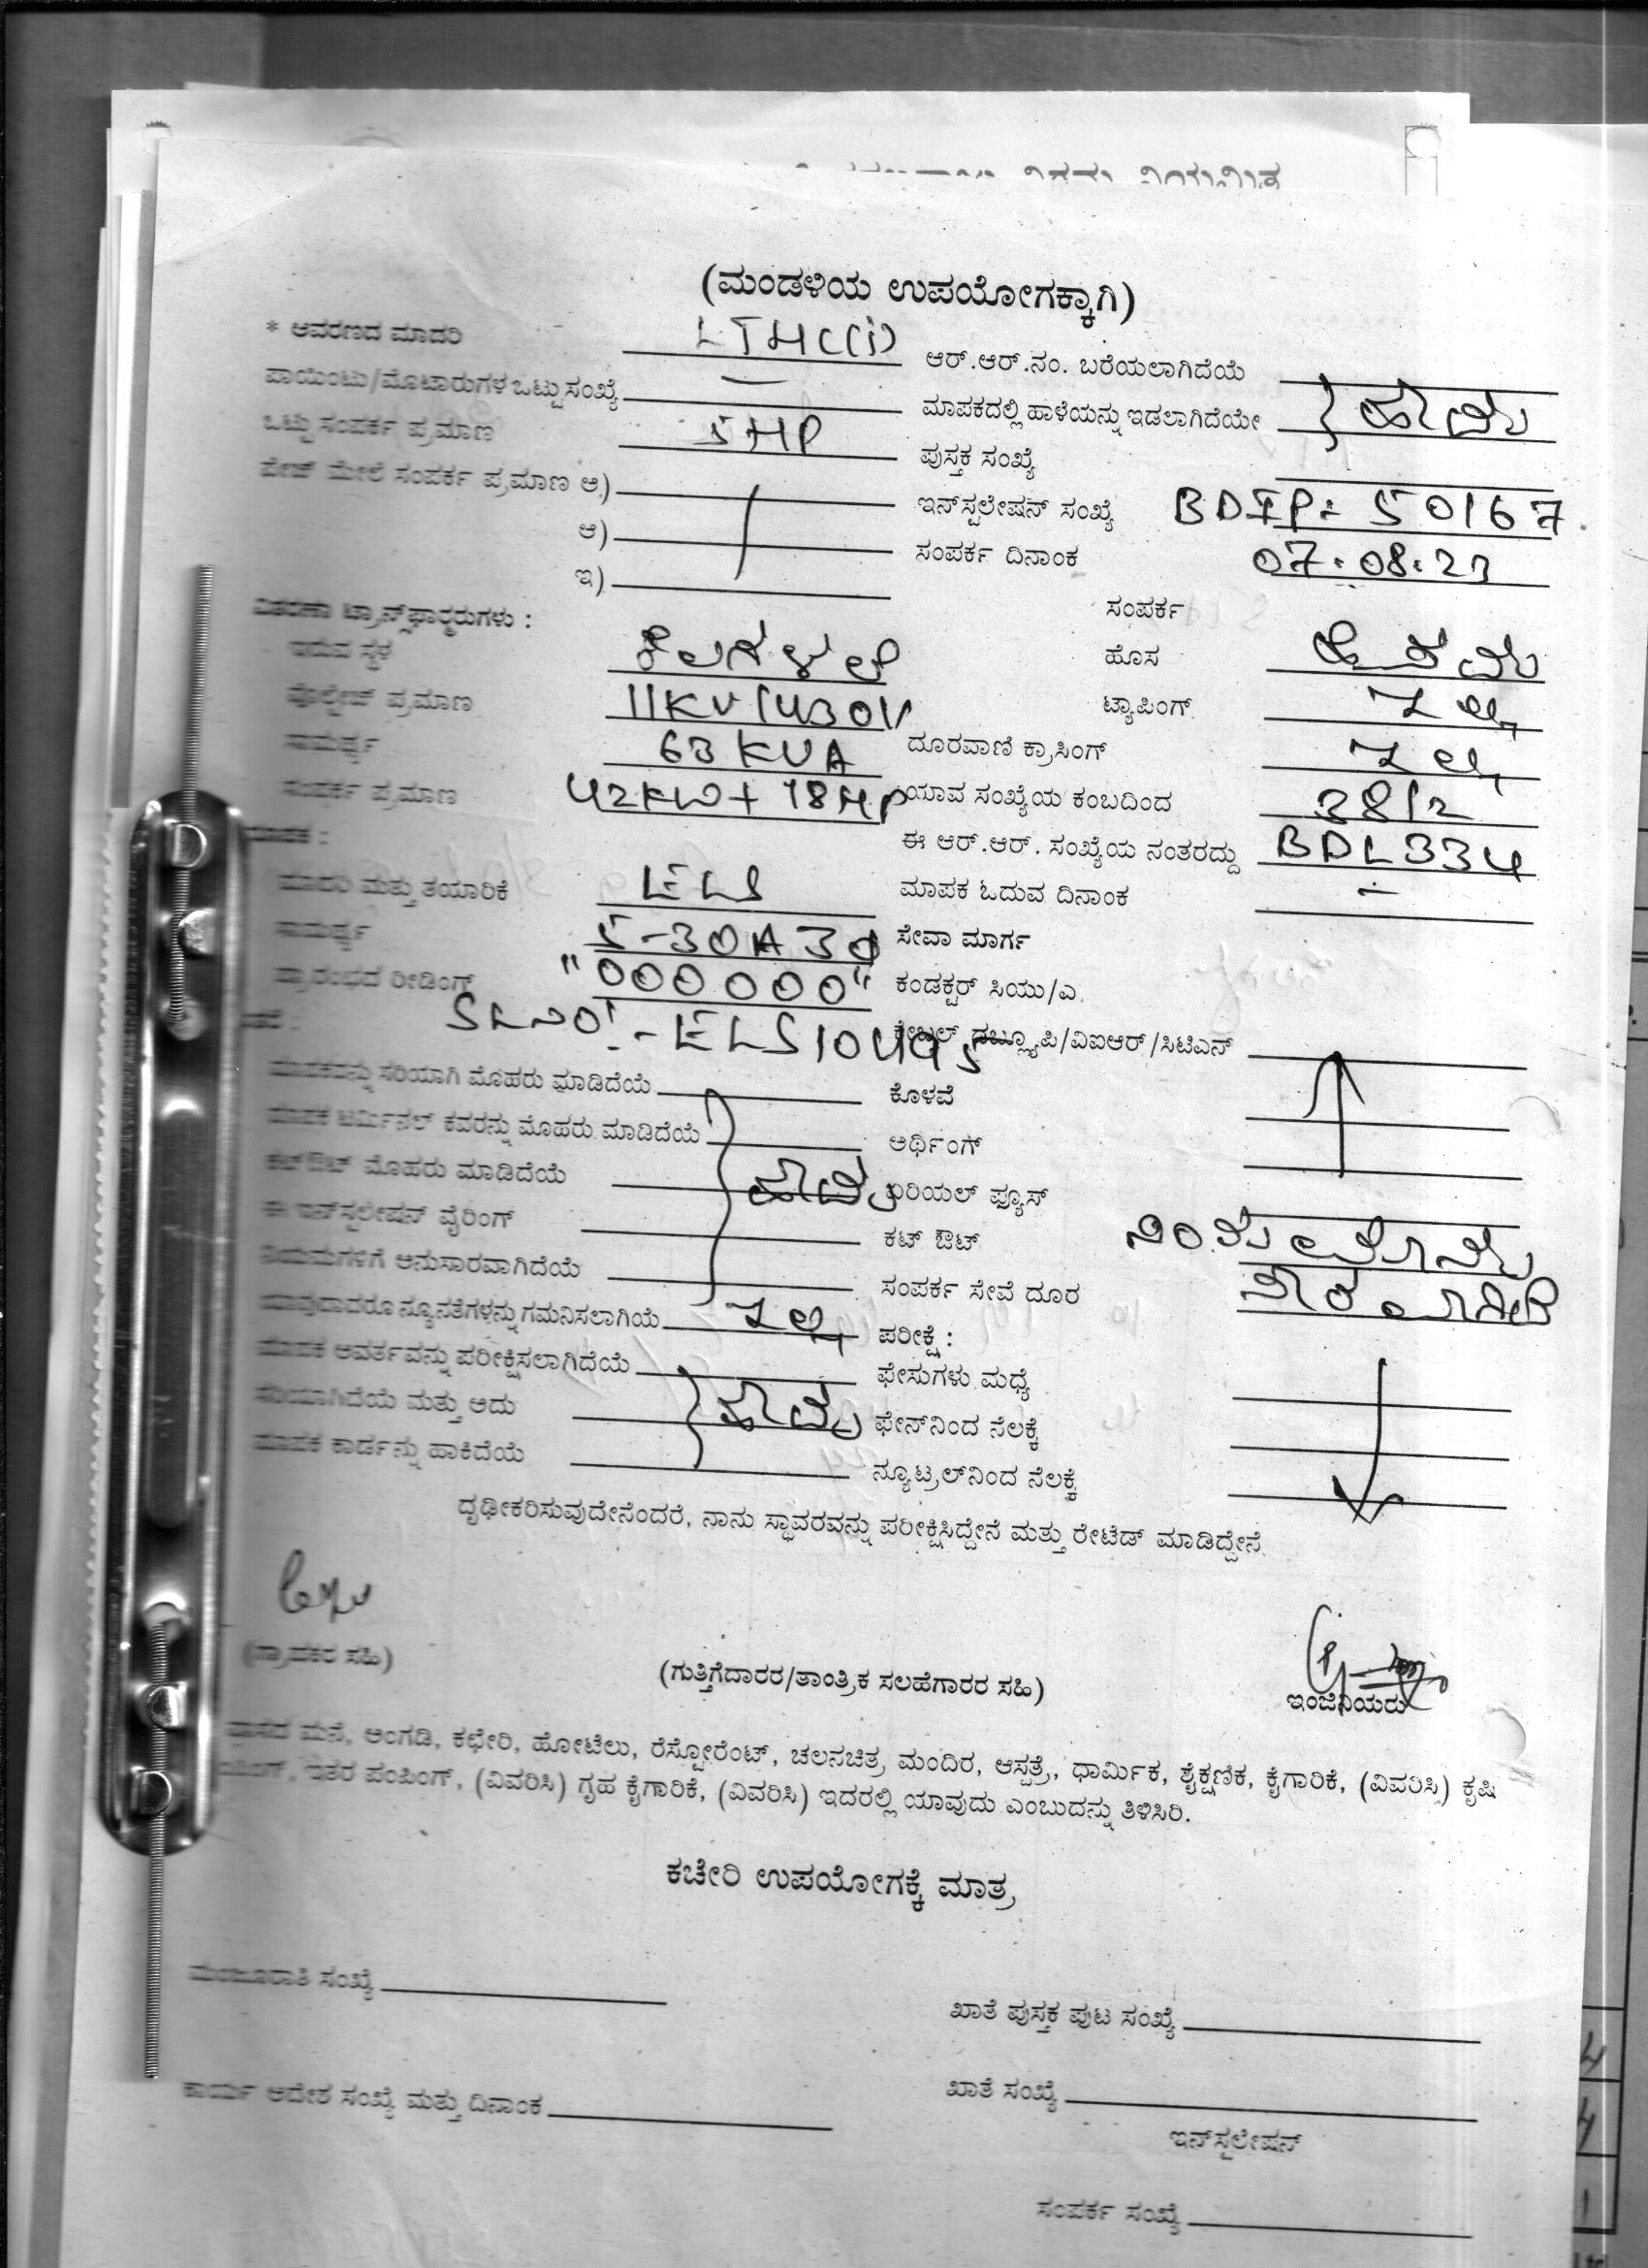 (ಮಂಡಳಿಯ ಉಪಯೋಗಕ್ಕಾಗಿ)
* ಆವರಣದ ಮಾದರಿ
ಆರ್.ಆರ್.ನಂ. ಬರೆಯಲಾಗಿದೆಯೆ
ಪಾಯಿಂಟು/ಮೋಟಾರುಗಳ ಒಟ್ಟು ಸಂಖ್ಯೆ —
ಮಾಪಕದಲ್ಲಿ ಹಾಳೆಯನ್ನು ಇಡಲಾಗಿದೆಯೇ } ಹೌದು
ಒಟ್ಟು ಸಂಪರ್ಕ ಪ್ರಮಾಣ 5HP
ಪುಸ್ತಕ ಸಂಖ್ಯೆ
ಪೇಜ್ ಮೇಲೆ ಸಂಪರ್ಕ ಪ್ರಮಾಣ ಅ)
ಇನ್‌ಸ್ಟಲೇಷನ್ ಸಂಖ್ಯೆ BDIP: 50167
ಆ)
ಸಂಪರ್ಕ ದಿನಾಂಕ 07.08.23
ಇ)
ಸಂಪರ್ಕ
ವಿತರಣಾ ಟ್ರಾನ್ಸ್‌ಫಾರ್ಮರುಗಳು :
ಇರುವ ಸ್ಥಳ
ಹೊಸ
ವೋಲ್ಟೇಜ್ ಪ್ರಮಾಣ 11KV/430V
ಟ್ಯಾಪಿಂಗ್ ಇಲ್ಲ
ಸಾಮರ್ಥ್ಯ 63 KVA
ದೂರವಾಣಿ ಕ್ರಾಸಿಂಗ್ ಇಲ್ಲ
ಸಂಪರ್ಕ ಪ್ರಮಾಣ 42KW + 18HP
ಯಾವ ಸಂಖ್ಯೆಯ ಕಂಬದಿಂದ 38/2
ಮಾಪಕ :
ಈ ಆರ್.ಆರ್. ಸಂಖ್ಯೆಯ ನಂತರದ್ದು BDL334
ಮಾದರಿ ಮತ್ತು ತಯಾರಿಕೆ ELS
ಮಾಪಕ ಓದುವ ದಿನಾಂಕ —
ಸಾಮರ್ಥ್ಯ 5-30A 3Φ
ಸೇವಾ ಮಾರ್ಗ
ಪ್ರಾರಂಭದ ರೀಡಿಂಗ್ "000000"
ಕಂಡಕ್ಟರ್ ಸಿಯು/ಎ.
SLNO:- ELS10495
ಕೇಬಲ್ ಡಬ್ಲ್ಯೂಪಿ/ವಿಐಆರ್/ಸಿಟಿಎನ್
ಮಾಪಕವನ್ನು ಸರಿಯಾಗಿ ಮೊಹರು ಮಾಡಿದೆಯೆ
ಕೊಳವೆ
ಮಾಪಕ ಟರ್ಮಿನಲ್ ಕವರನ್ನು ಮೊಹರು ಮಾಡಿದೆಯೆ
ಅರ್ಥಿಂಗ್
ಕಟ್‌ಔಟ್ ಮೊಹರು ಮಾಡಿದೆಯೆ ಹೌದು
ಏರಿಯಲ್ ಫ್ಯೂಸ್
ಈ ಇನ್‌ಸ್ಟಲೇಷನ್ ವೈರಿಂಗ್
ಕಟ್ ಔಟ್
ನಿಯಮಗಳಿಗೆ ಅನುಸಾರವಾಗಿದೆಯೆ
ಸಂಪರ್ಕ ಸೇವೆ ದೂರ
ಯಾವುದಾದರೂ ನ್ಯೂನತೆಗಳನ್ನು ಗಮನಿಸಲಾಗಿಯೆ ಇಲ್ಲ
ಪರೀಕ್ಷೆ :
ಮಾಪಕ ಆವರ್ತವನ್ನು ಪರೀಕ್ಷಿಸಲಾಗಿದೆಯೆ
ಫೇಸುಗಳು ಮಧ್ಯೆ
ಸರಿಯಾಗಿದೆಯೆ ಮತ್ತು ಅದು } ಹೌದು
ಫೇಸ್‌ನಿಂದ ನೆಲಕ್ಕೆ
ಮಾಪಕ ಕಾರ್ಡನ್ನು ಹಾಕಿದೆಯೆ
ನ್ಯೂಟ್ರಲ್‌ನಿಂದ ನೆಲಕ್ಕೆ
ದೃಢೀಕರಿಸುವುದೇನೆಂದರೆ, ನಾನು ಸ್ಥಾವರವನ್ನು ಪರೀಕ್ಷಿಸಿದ್ದೇನೆ ಮತ್ತು ರೇಟೆಡ್ ಮಾಡಿದ್ದೇನೆ.
(ಗ್ರಾಹಕರ ಸಹಿ)
(ಗುತ್ತಿಗೆದಾರರ/ತಾಂತ್ರಿಕ ಸಲಹೆಗಾರರ ಸಹಿ)
ಇಂಜಿನಿಯರು
ವಾಸದ ಮನೆ, ಅಂಗಡಿ, ಕಛೇರಿ, ಹೋಟೆಲು, ರೆಸ್ಟೋರೆಂಟ್, ಚಲನಚಿತ್ರ ಮಂದಿರ, ಆಸ್ಪತ್ರೆ, ಧಾರ್ಮಿಕ, ಶೈಕ್ಷಣಿಕ, ಕೈಗಾರಿಕೆ, (ವಿವರಿಸಿ) ಕೃಷಿ
ಇತರ ಪಂಪಿಂಗ್, (ವಿವರಿಸಿ) ಗೃಹ ಕೈಗಾರಿಕೆ, (ವಿವರಿಸಿ) ಇದರಲ್ಲಿ ಯಾವುದು ಎಂಬುದನ್ನು ತಿಳಿಸಿರಿ.
ಕಚೇರಿ ಉಪಯೋಗಕ್ಕೆ ಮಾತ್ರ
ಮಂಜೂರಾತಿ ಸಂಖ್ಯೆ
ಖಾತೆ ಪುಸ್ತಕ ಪುಟ ಸಂಖ್ಯೆ
ಕಾರ್ಯ ಆದೇಶ ಸಂಖ್ಯೆ ಮತ್ತು ದಿನಾಂಕ
ಖಾತೆ ಸಂಖ್ಯೆ
ಇನ್‌ಸ್ಟಲೇಷನ್
ಸಂಪರ್ಕ ಸಂಖ್ಯೆ